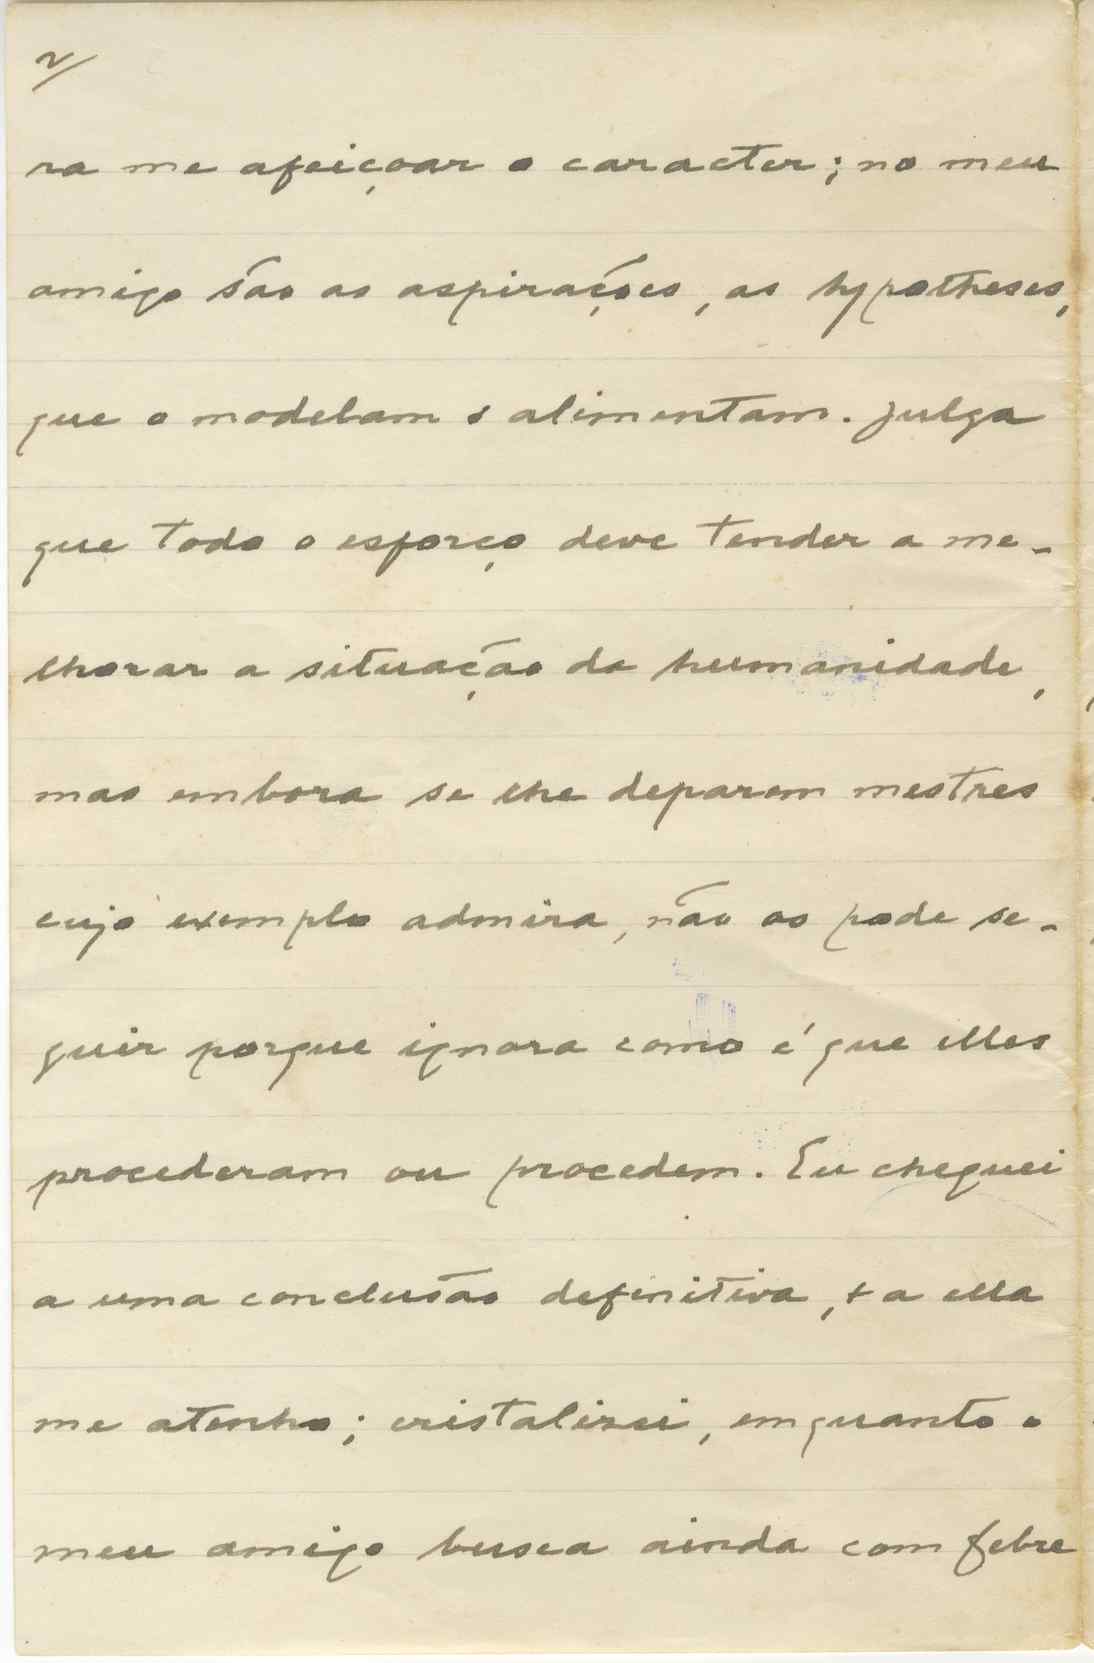 2/
ra me afeiçoar o caracter; no meu
amigo são as aspirações, as hypotheses,
que o modelam e alimentam. Julga
que todo o esforço deve tender a me-
lhorar a situação da humanidade,
mas embora se lhe deparem mestres
cujo exemplo admira, não os pode se-
guir porque ignora como é que elles
procederam ou procedem. Eu cheguei
a uma conclusão definitiva, + a ella
me atenho; cristalizei, emquanto o
meu amigo busca ainda com febre